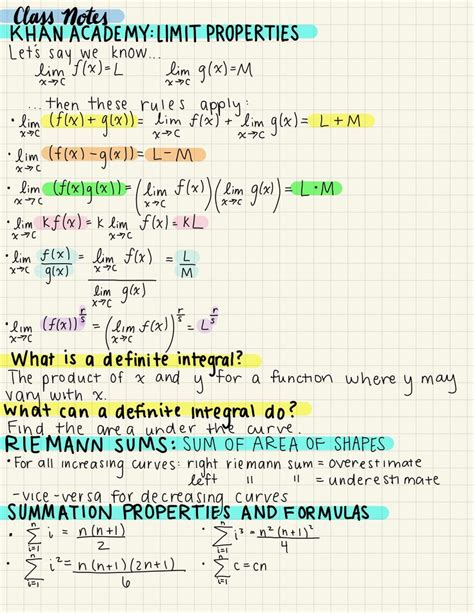 Class Notes
KHAN ACADEMY: LIMIT PROPERTIES
Let's say we know...
lim x→c f(x)=L lim x→c g(x)=M
...then these rules apply:
• lim x→c (f(x)+g(x)) = lim x→c f(x) + lim x→c g(x) = L+M
• lim x→c (f(x)-g(x)) = L-M
• lim x→c (f(x)g(x)) = (lim x→c f(x))(lim x→c g(x)) = L•M
• lim x→c Kf(x) = k lim x→c f(x) = KL
• lim x→c f(x)/g(x) = lim x→c f(x) / lim x→c g(x) = L/M
• lim x→c (f(x))^(r/s) = (lim x→c f(x))^(r/s) = L^(r/s)
What is a definite integral?
The product of x and y for a function where y may
vary with x.
What can a definite integral do?
Find the area under the curve.
RIEMANN SUMS: SUM OF AREA OF SHAPES
• For all increasing curves: right riemann sum = overestimate
left " " = underestimate
-vice-versa for decreasing curves
SUMMATION PROPERTIES AND FORMULAS
• n Σ i=1 i = n(n+1)/2 • n Σ i=1 i³ = n²(n+1)²/4
• n Σ i=1 i² = n(n+1)(2n+1)/6 • n Σ i=1 c = cn